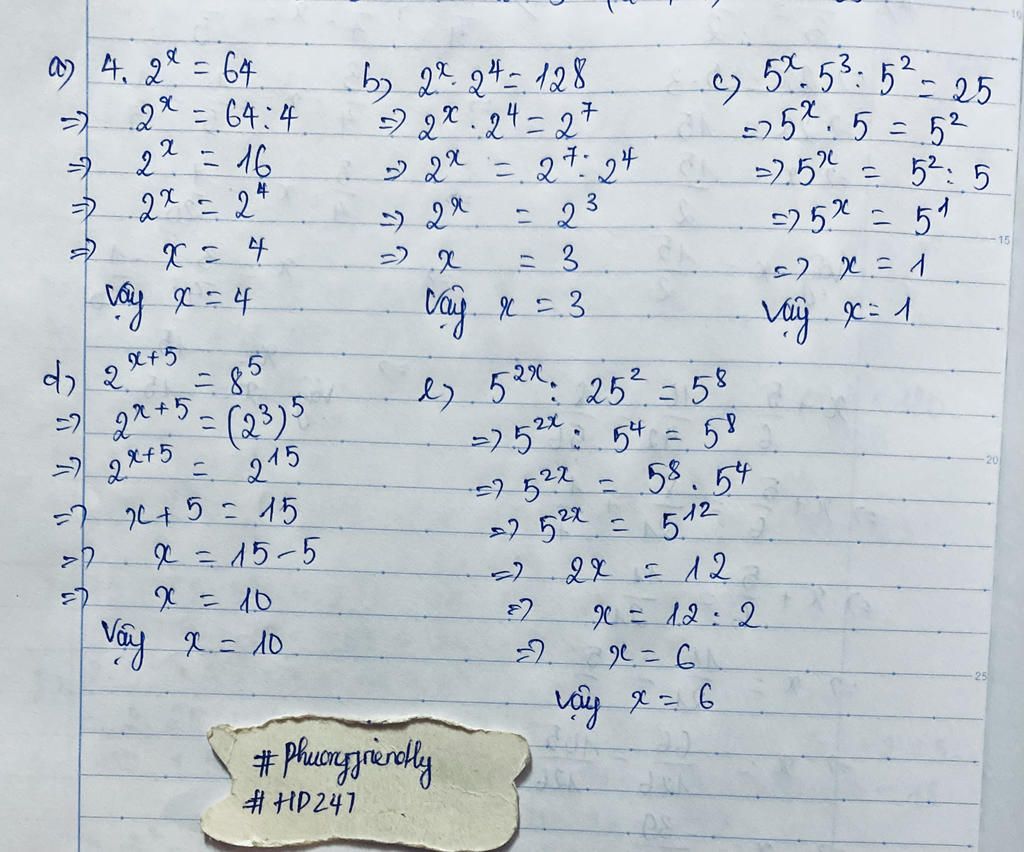 a) 4. 2^x = 64
=> 2^x = 64 : 4
=> 2^x = 16
=> 2^x = 2^4
=> x = 4
Vậy x = 4
b) 2^x . 2^4 = 128
=> 2^x . 2^4 = 2^7
=> 2^x = 2^7 : 2^4
=> 2^x = 2^3
=> x = 3
Vậy x = 3
c) 5^x . 5^3 : 5^2 = 25
=> 5^x . 5 = 5^2
=> 5^x = 5^2 : 5
=> 5^x = 5^1
=> x = 1
Vậy x = 1
d) 2^{x+5} = 8^5
=> 2^{x+5} = (2^3)^5
=> 2^{x+5} = 2^{15}
=> x + 5 = 15
=> x = 15 - 5
=> x = 10
Vậy x = 10
e) 5^{2x} : 25^2 = 5^8
=> 5^{2x} : 5^4 = 5^8
=> 5^{2x} = 5^8 . 5^4
=> 5^{2x} = 5^{12}
=> 2x = 12
=> x = 12 : 2
=> x = 6
Vậy x = 6
10
15
20
25
# phuongfriendly
# HD247